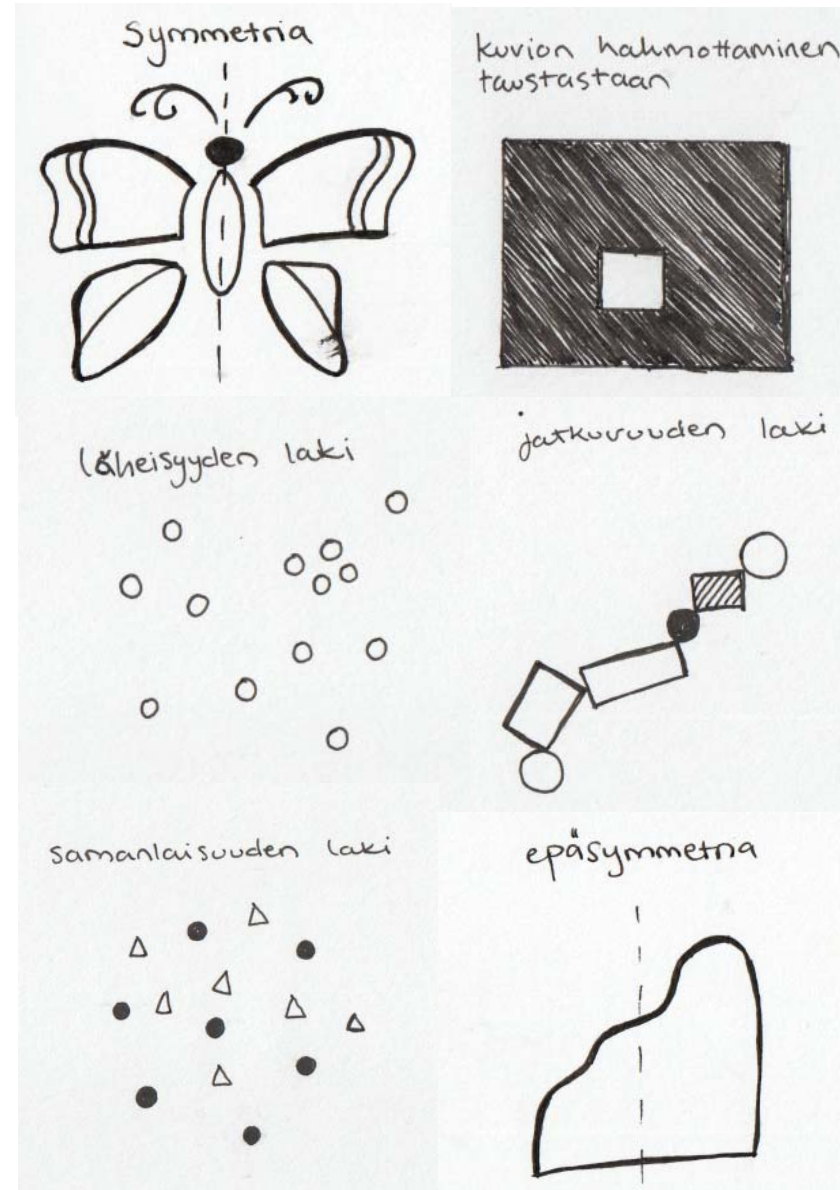 Symmetria
kuvion hahmottaminen
taustastaan
läheisyyden laki
jatkuvuuden laki
samanlaisuuden laki
epäsymmetria